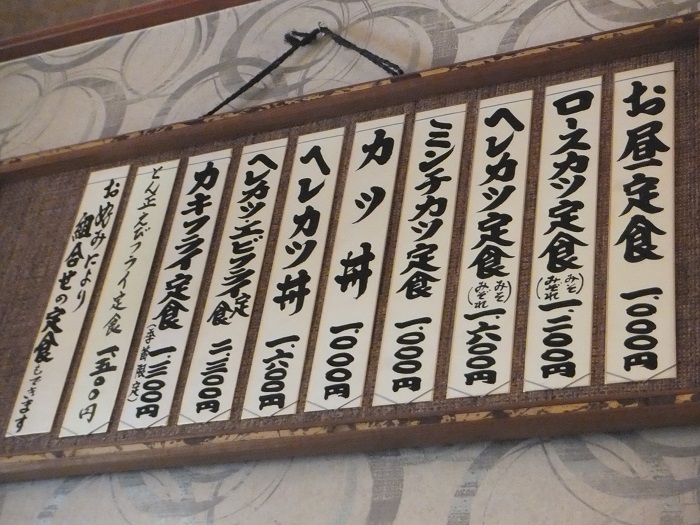 お昼定食 一、〇〇〇円
ロースカツ定食(みそ みぞれ)一、二〇〇円
ヘレカツ定食(みそ みぞれ)一、六〇〇円
ミンチカツ定食 一、〇〇〇円
カツ丼 一、〇〇〇円
ヘレカツ丼 一、六〇〇円
ヘレカツ・エビフライ定食 二、三〇〇円
カキフライ定食(季節限定)一、三〇〇円
とん正えびフライ定食 一、五〇〇円
お好みにより
組合せの定食もできます